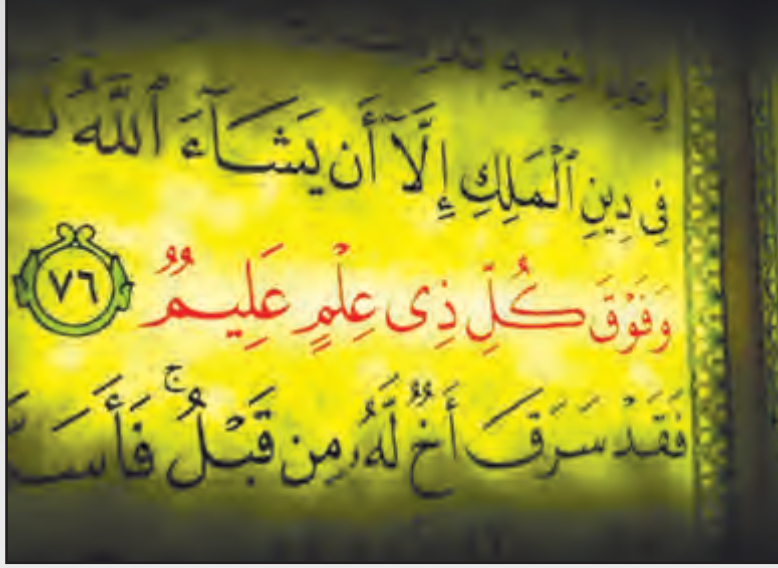 أَخِيهِ
فِى دِينِ ٱلْمَلِكِ إِلَّآ أَن يَشَآءَ ٱللَّهُ
وَفَوْقَ كُلِّ ذِى عِلْمٍ عَلِيمٌ ٧٦
فَقَدْ سَرَقَ أَخٌ لَّهُۥ مِن قَبْلُ ۚ